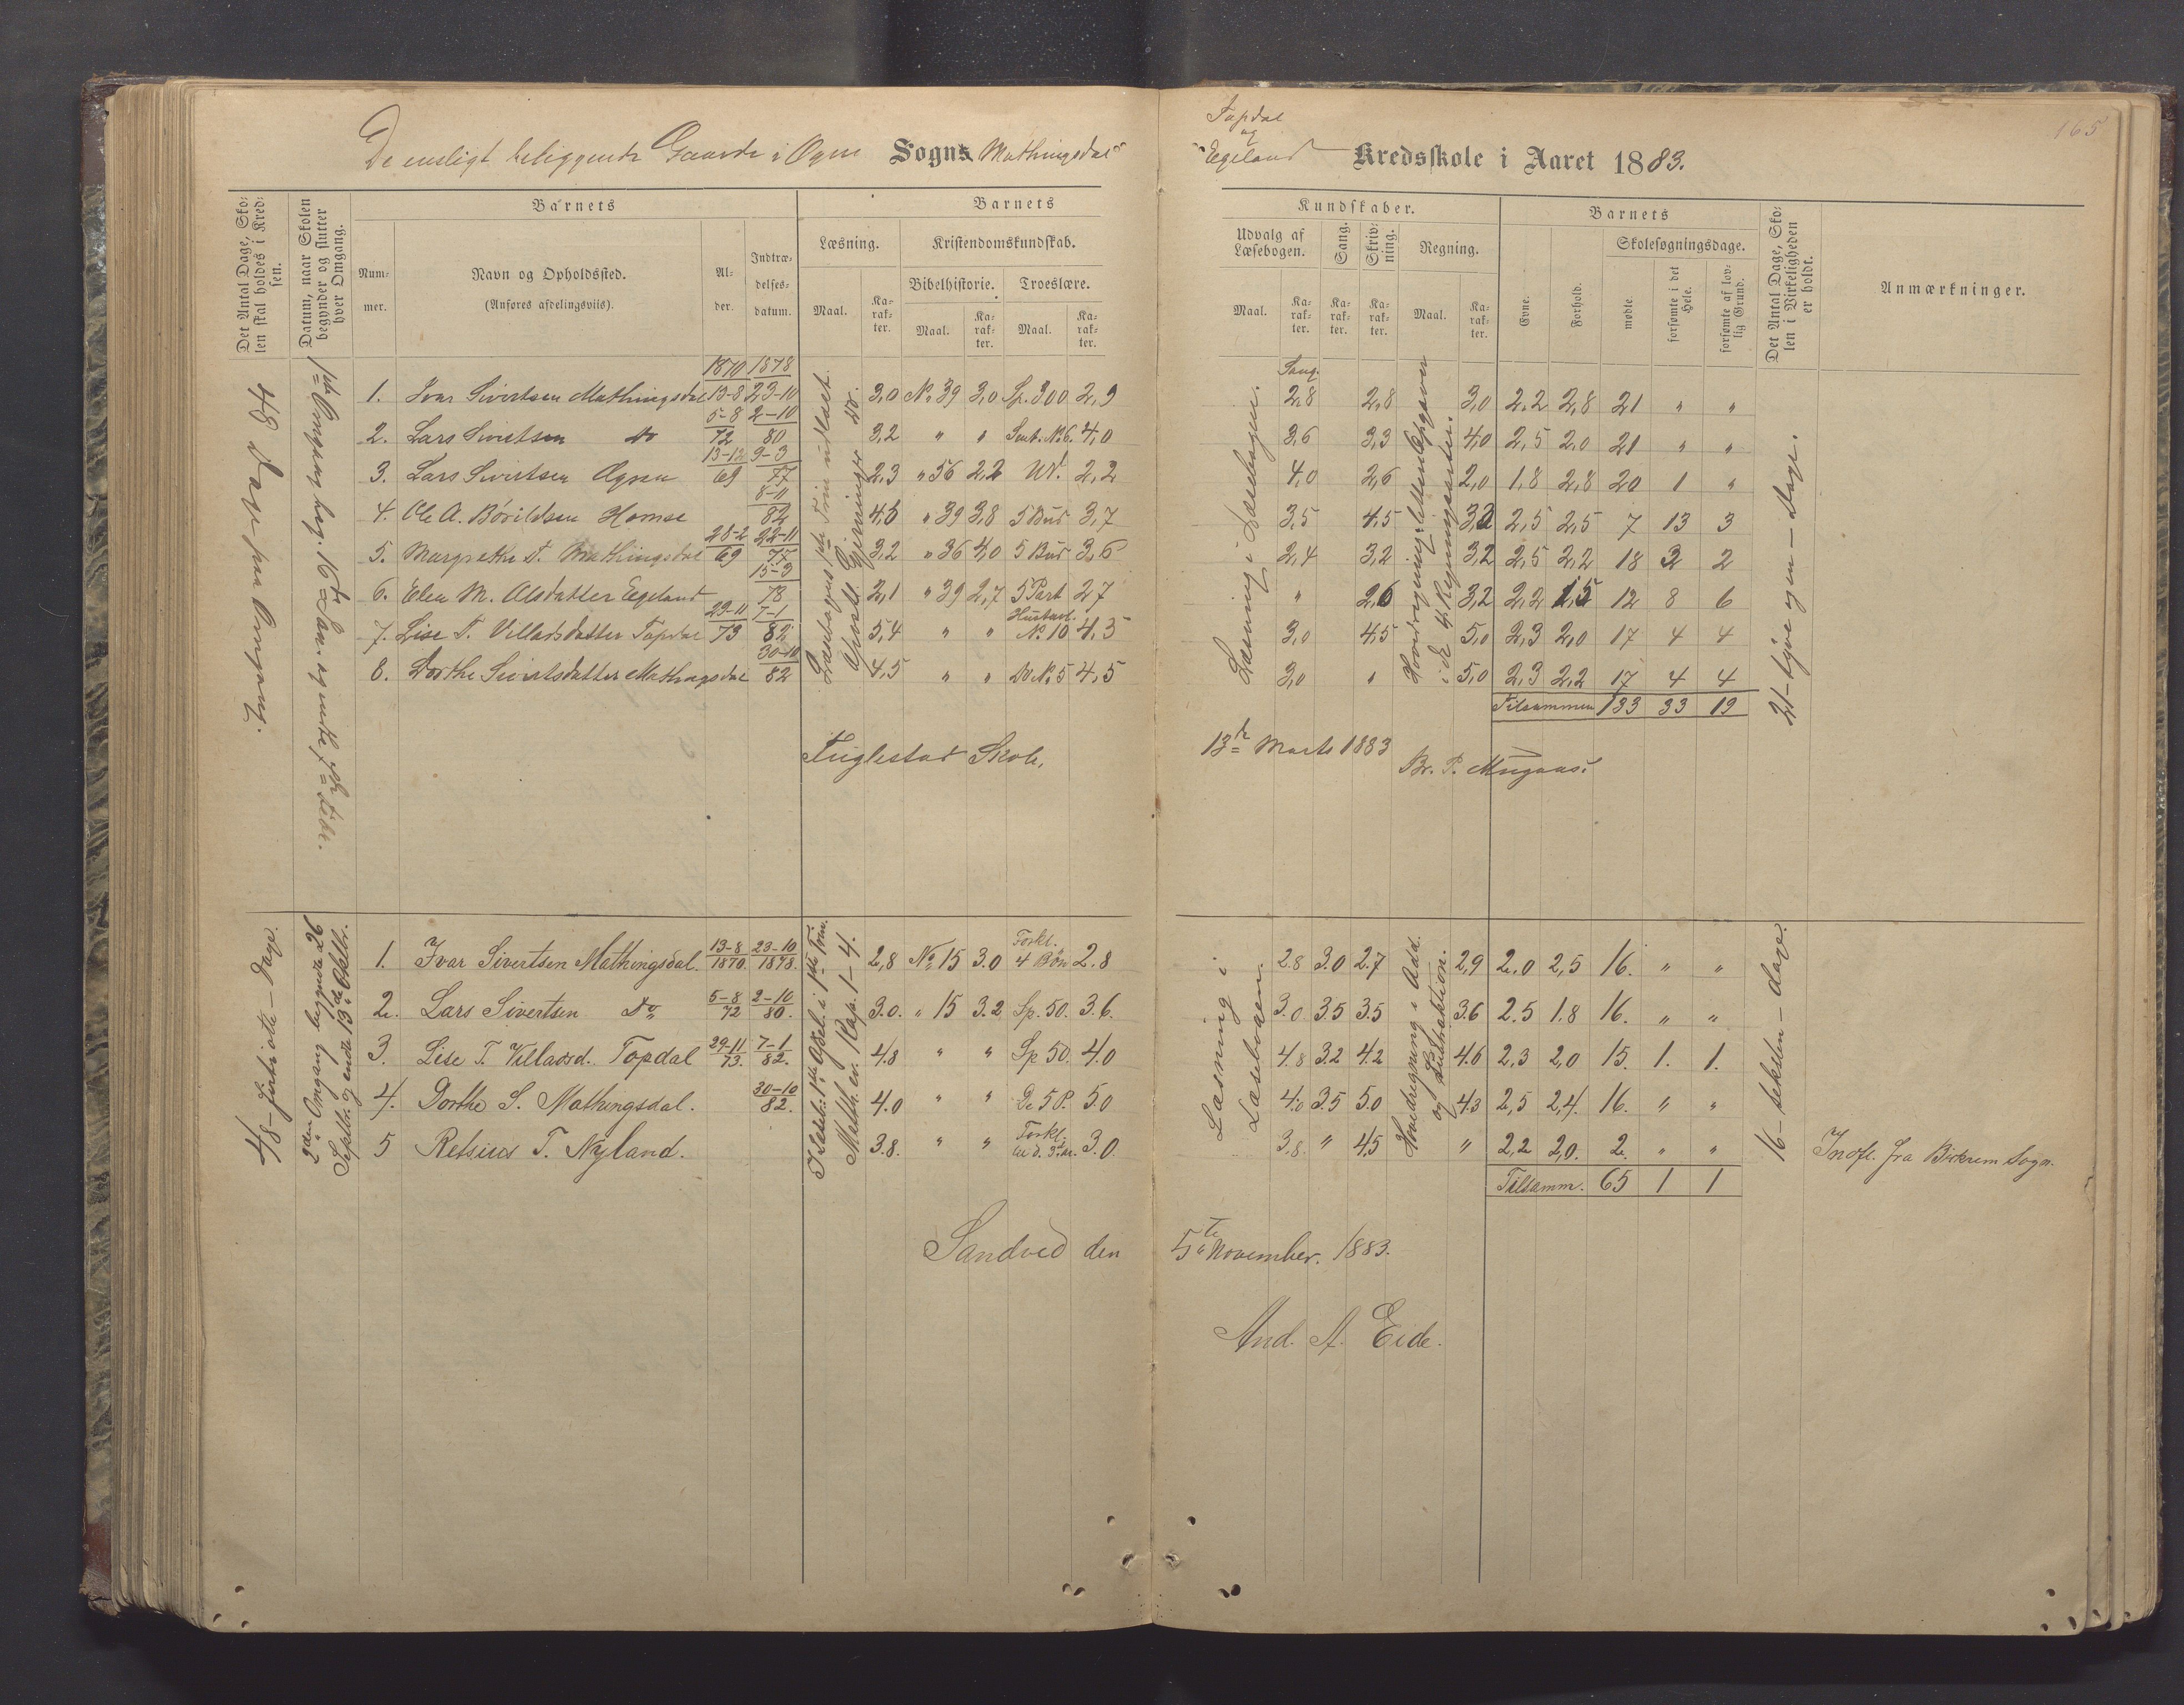 165
De ensligt beliggende Gaarde i Ogne Sogns "Mathingsdal"
Topdal
og
"Egeland" Kredsskole i Aaret 1883.
Det Antal Dage, Skolen skal holdes i Kredsen.
Datum, naar Skolen begynder og slutter hver Omgang.
Barnets
Barnets
Kundskaber.
Barnets
Det Antal Dage, Skolen i Virkeligheden er holdt.
Anmærkninger.
Nummer.
Navn og Opholdssted.
(Anføres afdelingsviis).
Alder.
Indtrædelsesdatum.
Læsning.
Kristendomskundskab.
Bibelhistorie.
Troeslære.
Maal.
Karakter.
Maal.
Karakter.
Maal.
Karakter.
Udvalg af Læsebogen.
Sang.
Skrivning.
Regning.
Maal.
Karakter.
Karakter.
Karakter.
Maal.
Karakter.
Evne.
Forhold.
Skolesøgningsdage.
mødte.
forsømte i det Hele.
forsømte af lovlig Grund.
48 Dage pr. Omgang.
Læsning i Læsebogen.
21 - tyve og en - Dage.
Sang.
1. Ivar Sivertsen Mathingsdal 1870 13-8 1878 23-10 3,0 No 39 3,0 Sp. 300 2,9 2,8 2,8 3,0 2,2 2,8 21 " "
2. Lars Sivertsen do 5-8 72 2-10 80 3,2 " " No. 6. 4,0 3,6 3,3 4,0 2,5 2,0 21 " "
3. Lars Sivertsen Ognen 13-12 69 9-3 77 2,3 " 56 2,2 Ud. 2,2 4,0 2,6 2,0 1,8 2,8 20 1 "
4. Ole A. Børildsen Homse 8-11 82 4,5 " 39 3,8 5 Bud 3,7 3,5 4,5 2,5 2,5 7 13 3
5. Margrethe T. Mathingsdal 28-2 69 22-11 77 3,2 " 36 4,0 5 Bud 3,6 2,4 3,2 3,2 2,5 2,2 18 3 2
6. Elen M. Olsdatter Egeland 15-3 78 2,1 " 39 2,7 5 Part 2,7 " 2,6 3,2 2,2 1,5 12 8 6
7. Lise T. Villadsdatter Topdal 29-11 73 7-1 82 5,4 " " Hustavl. No 10 4,5 3,0 4,5 5,0 2,3 2,0 17 4 4
8. Dorthe Sivertsdatter Mathingsdal 30-10 82 4,5 " " Do No 5 4,5 3,0 " 5,0 2,3 2,2 17 4 4
Tilsammen 133 33 19
Fuglestad Skole, 13de Marts 1883
Br. P. Mugaas.
48 - fortiotte - Dage.
2den Omgang begyndte 26 Septbr. og endte 13de Oktbr.
Matth. ev. Kap. 1-4.
Læsning i Læsebogen.
Hovedregning i Add. og Subtraktion.
16 - seksten - dage.
1. Ivar Sivertsen Mathingsdal. 13-8 1870. 23-10 1878. 2,8 No 15 3.0 Forkl. 4 Bøn 2.8 2.8 3.0 2.7 2,9 2.0 2,5 16. " "
2. Lars Sivertsen Do 5-8 72 2-10 80. 3.0. " 15 3.2 Sp. 50. 3.6. 3.0 3.5 3.5 3.6 2.5 1.8 16. " "
3. Lise T. Villadsd. Topdal 29-11 73. 7-1 82. 4.8 " " Sp 50. 4.0 4.8 3.2 4.2 4.6 2,3 2,0 15. 1. 1.
4. Dorthe S. Mathingsdal. 30-10 82. 4.0 " " De 5 P. 5.0 4.0 3.5 5.0 4.3 2,5 2,4. 16. " "
5 Retsius T. Nyland. 3.8. " " Forkl. 3.0 3.8. " 4.5 " 2,2 2,0. 2. " " Indfl. fra Birkrem Sogn.
Tilsamm. 65 1 1
Sandved den 5te November. 1883.
And. A. Eide.